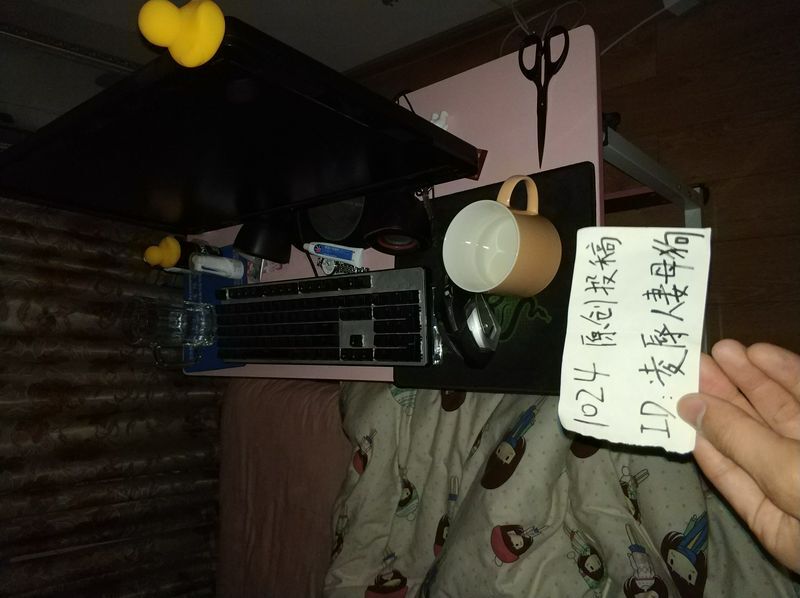 1024 原创投稿
ID:凌辱人妻母狗